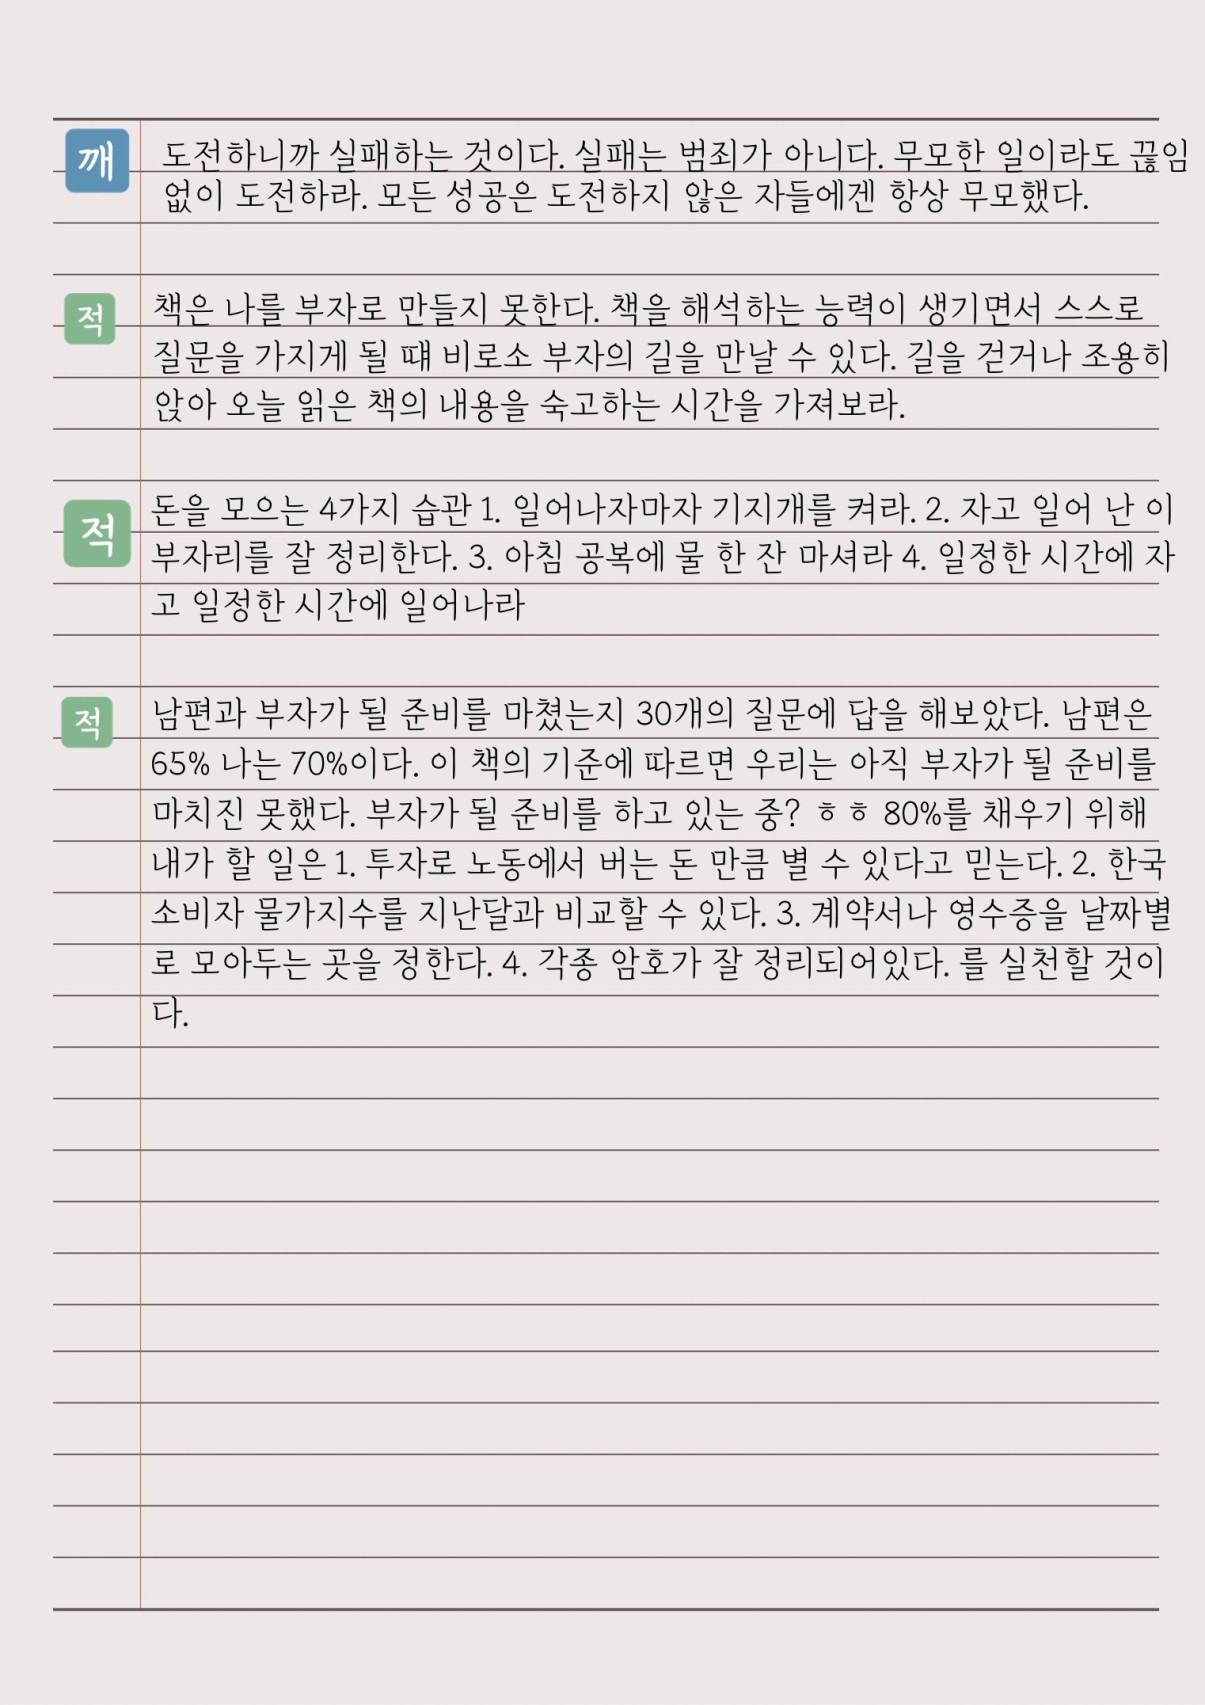 깨
도전하니까 실패하는 것이다. 실패는 범죄가 아니다. 무모한 일이라도 끊임
없이 도전하라. 모든 성공은 도전하지 않은 자들에겐 항상 무모했다.
적
책은 나를 부자로 만들지 못한다. 책을 해석하는 능력이 생기면서 스스로
질문을 가지게 될 떄 비로소 부자의 길을 만날 수 있다. 길을 걷거나 조용히
앉아 오늘 읽은 책의 내용을 숙고하는 시간을 가져보라.
적
돈을 모으는 4가지 습관 1. 일어나자마자 기지개를 켜라. 2. 자고 일어 난 이
부자리를 잘 정리한다. 3. 아침 공복에 물 한 잔 마셔라 4. 일정한 시간에 자
고 일정한 시간에 일어나라
적
남편과 부자가 될 준비를 마쳤는지 30개의 질문에 답을 해보았다. 남편은
65% 나는 70%이다. 이 책의 기준에 따르면 우리는 아직 부자가 될 준비를
마치진 못했다. 부자가 될 준비를 하고 있는 중? ㅎㅎ 80%를 채우기 위해
내가 할 일은 1. 투자로 노동에서 버는 돈 만큼 벌 수 있다고 믿는다. 2. 한국
소비자 물가지수를 지난달과 비교할 수 있다. 3. 계약서나 영수증을 날짜별
로 모아두는 곳을 정한다. 4. 각종 암호가 잘 정리되어있다. 를 실천할 것이
다.